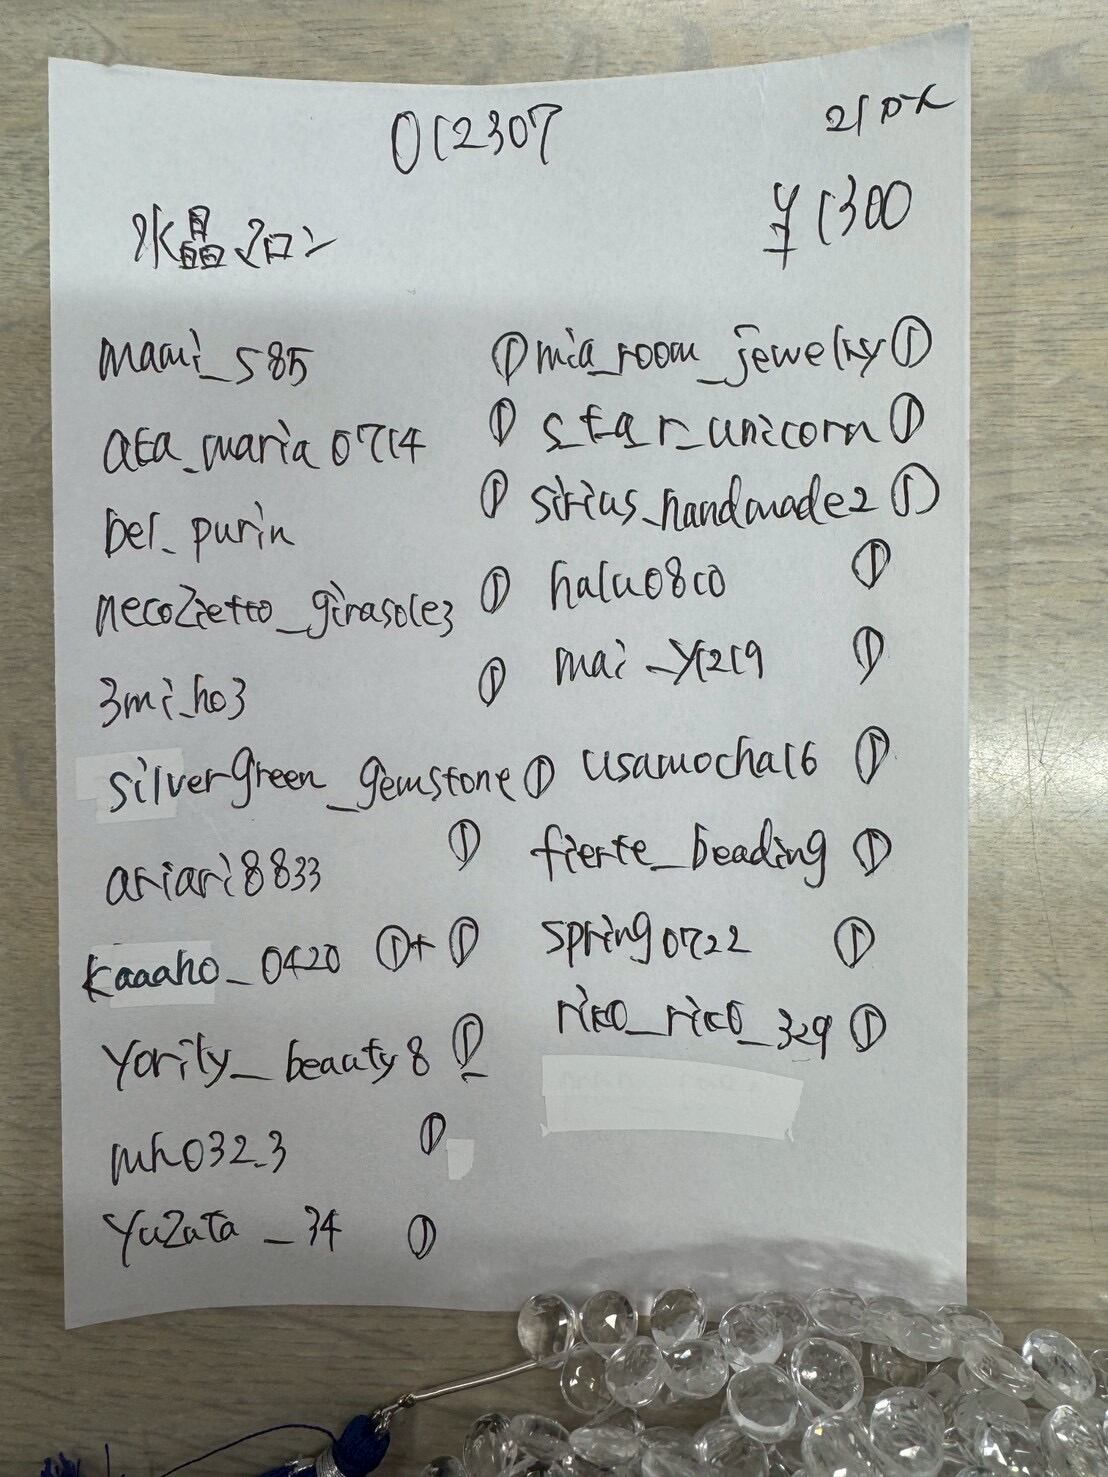 012307
21ピース
水晶マロン
¥1300
mami_585 ①
ata_maria0714 ①
bel_purin ①
necozietto_girasole3 ①
3mi_ho3 ①
silvergreen_gemstone ①
ariari8833 ①
kaaaho_0420 ①+①
yority_beauty8 ①
mh032_3 ①
yuzuta_34 ①
mia_room_jewelry ①
s_t_a_r_unicorn ①
sirius_handmade2 ①
halu0810 ①
mai_y1219 ①
usamocha16 ①
fierte_beading ①
spring0722 ①
rico_rico_329 ①